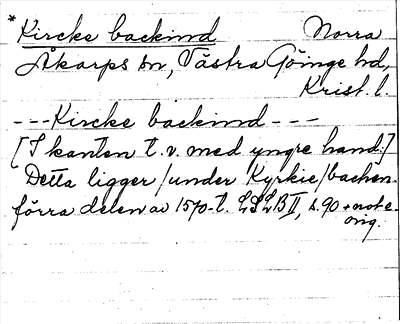 *Kircke backind Norra
Åkarps sn, Västra Göinge hd,
Krist. l.
---Kircke backind---
[I kanten t. v. med yngre hand:]
Detta ligger /under Kyrkie/backen.
förra delen av 1570-t. LSLB II, s. 90 + note
orig.